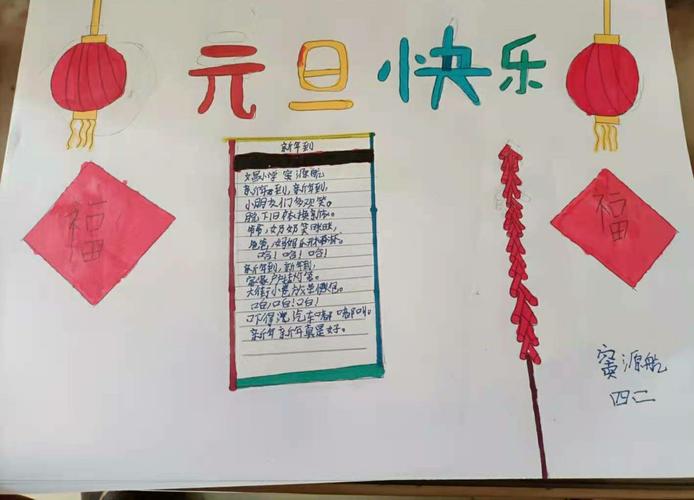 元旦快乐
福
福
新年到
小学 窦源航
新年到,新年到,
小朋友们多欢笑。
脱下旧衣换新衣。
爷爷,奶奶笑眯眯,
爸爸,妈妈乐开怀。
哈!哈!哈!
新年到,新年到,
家家户户挂灯笼。
大街小巷放
啪!啪!啪!
吓得 汽车嘟嘟叫。
新年新年真是好。
窦源航
四二